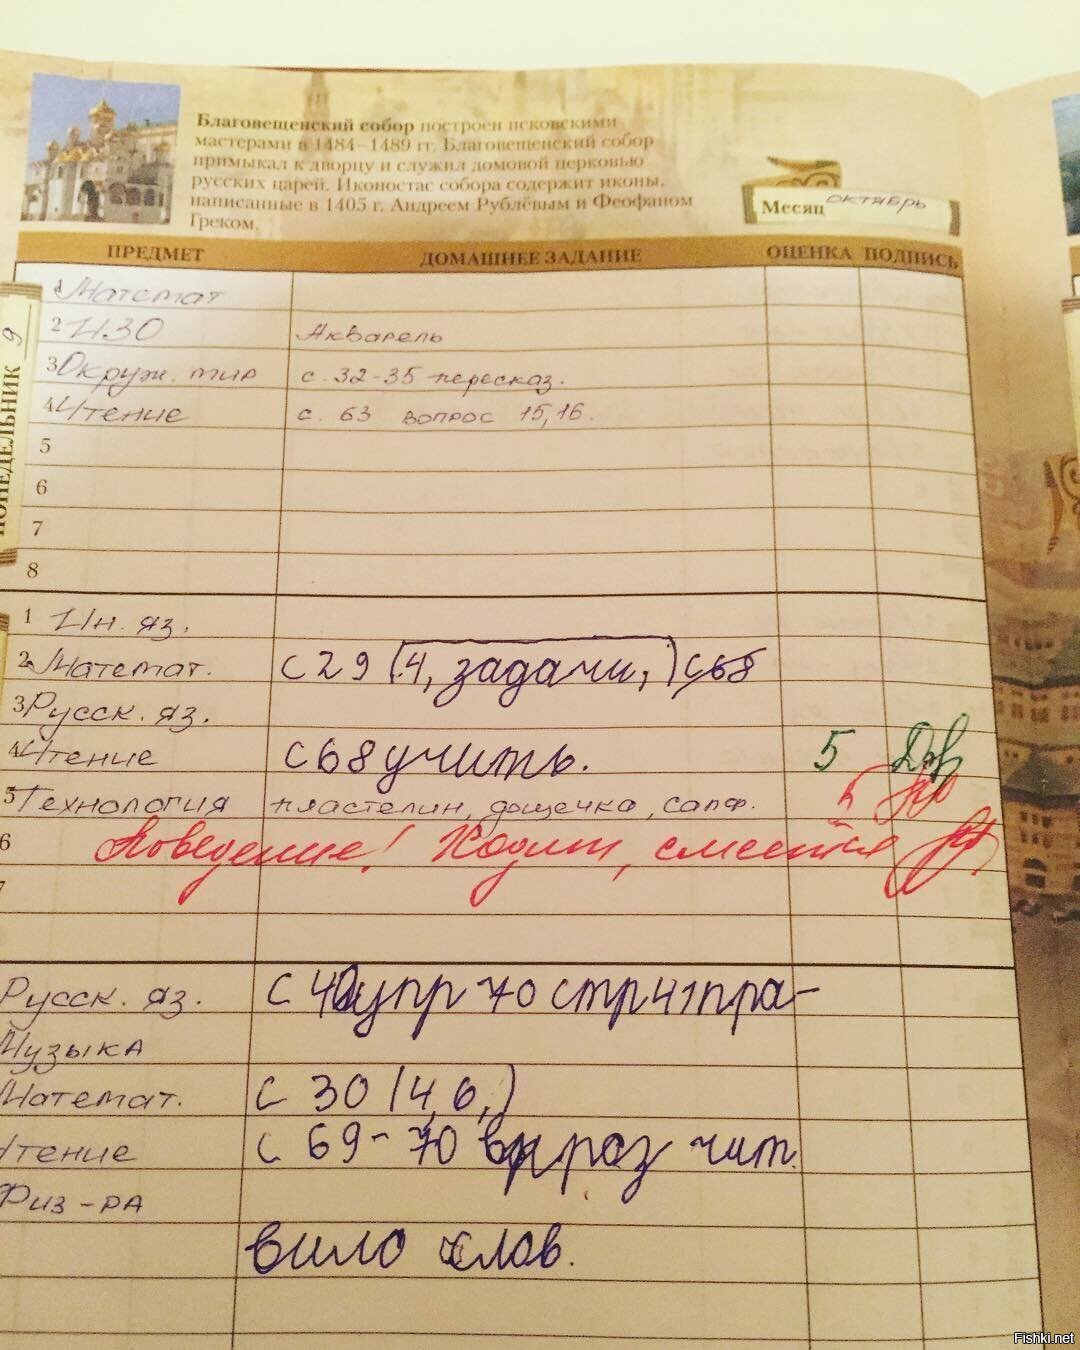 Благовещенский собор построен псковскими
мастерами в 1484–1489 гг. Благовещенский собор
примыкал к дворцу и служил домовой церковью
русских царей. Иконостас собора содержит иконы,
написанные в 1405 г. Андреем Рублёвым и Феофаном
Греком.
Месяц октябрь
ПРЕДМЕТ ДОМАШНЕЕ ЗАДАНИЕ ОЦЕНКА ПОДПИСЬ
ПОНЕДЕЛЬНИК 9
1 Математ
2 ИЗО Акварель
3 Окруж. мир с. 32-35 пересказ.
4 Чтение с. 63 вопрос 15, 16.
5
6
7
8
1 Ин. яз.
2 Математ. с 29 (4, задачи,) с 68
3 Русск. яз.
4 Чтение с 68 учить. 5
5 Технология пластелин, дощечка, салф. 5
6 Поведение! Ходит, смеется
7
Русск. яз. с 40 упр 70 стр 41 пра-
Музыка
Математ. с 30 (4, 6,)
Чтение с 69-70 выраз чит.
Физ-ра
вило слов.
Fishki.net